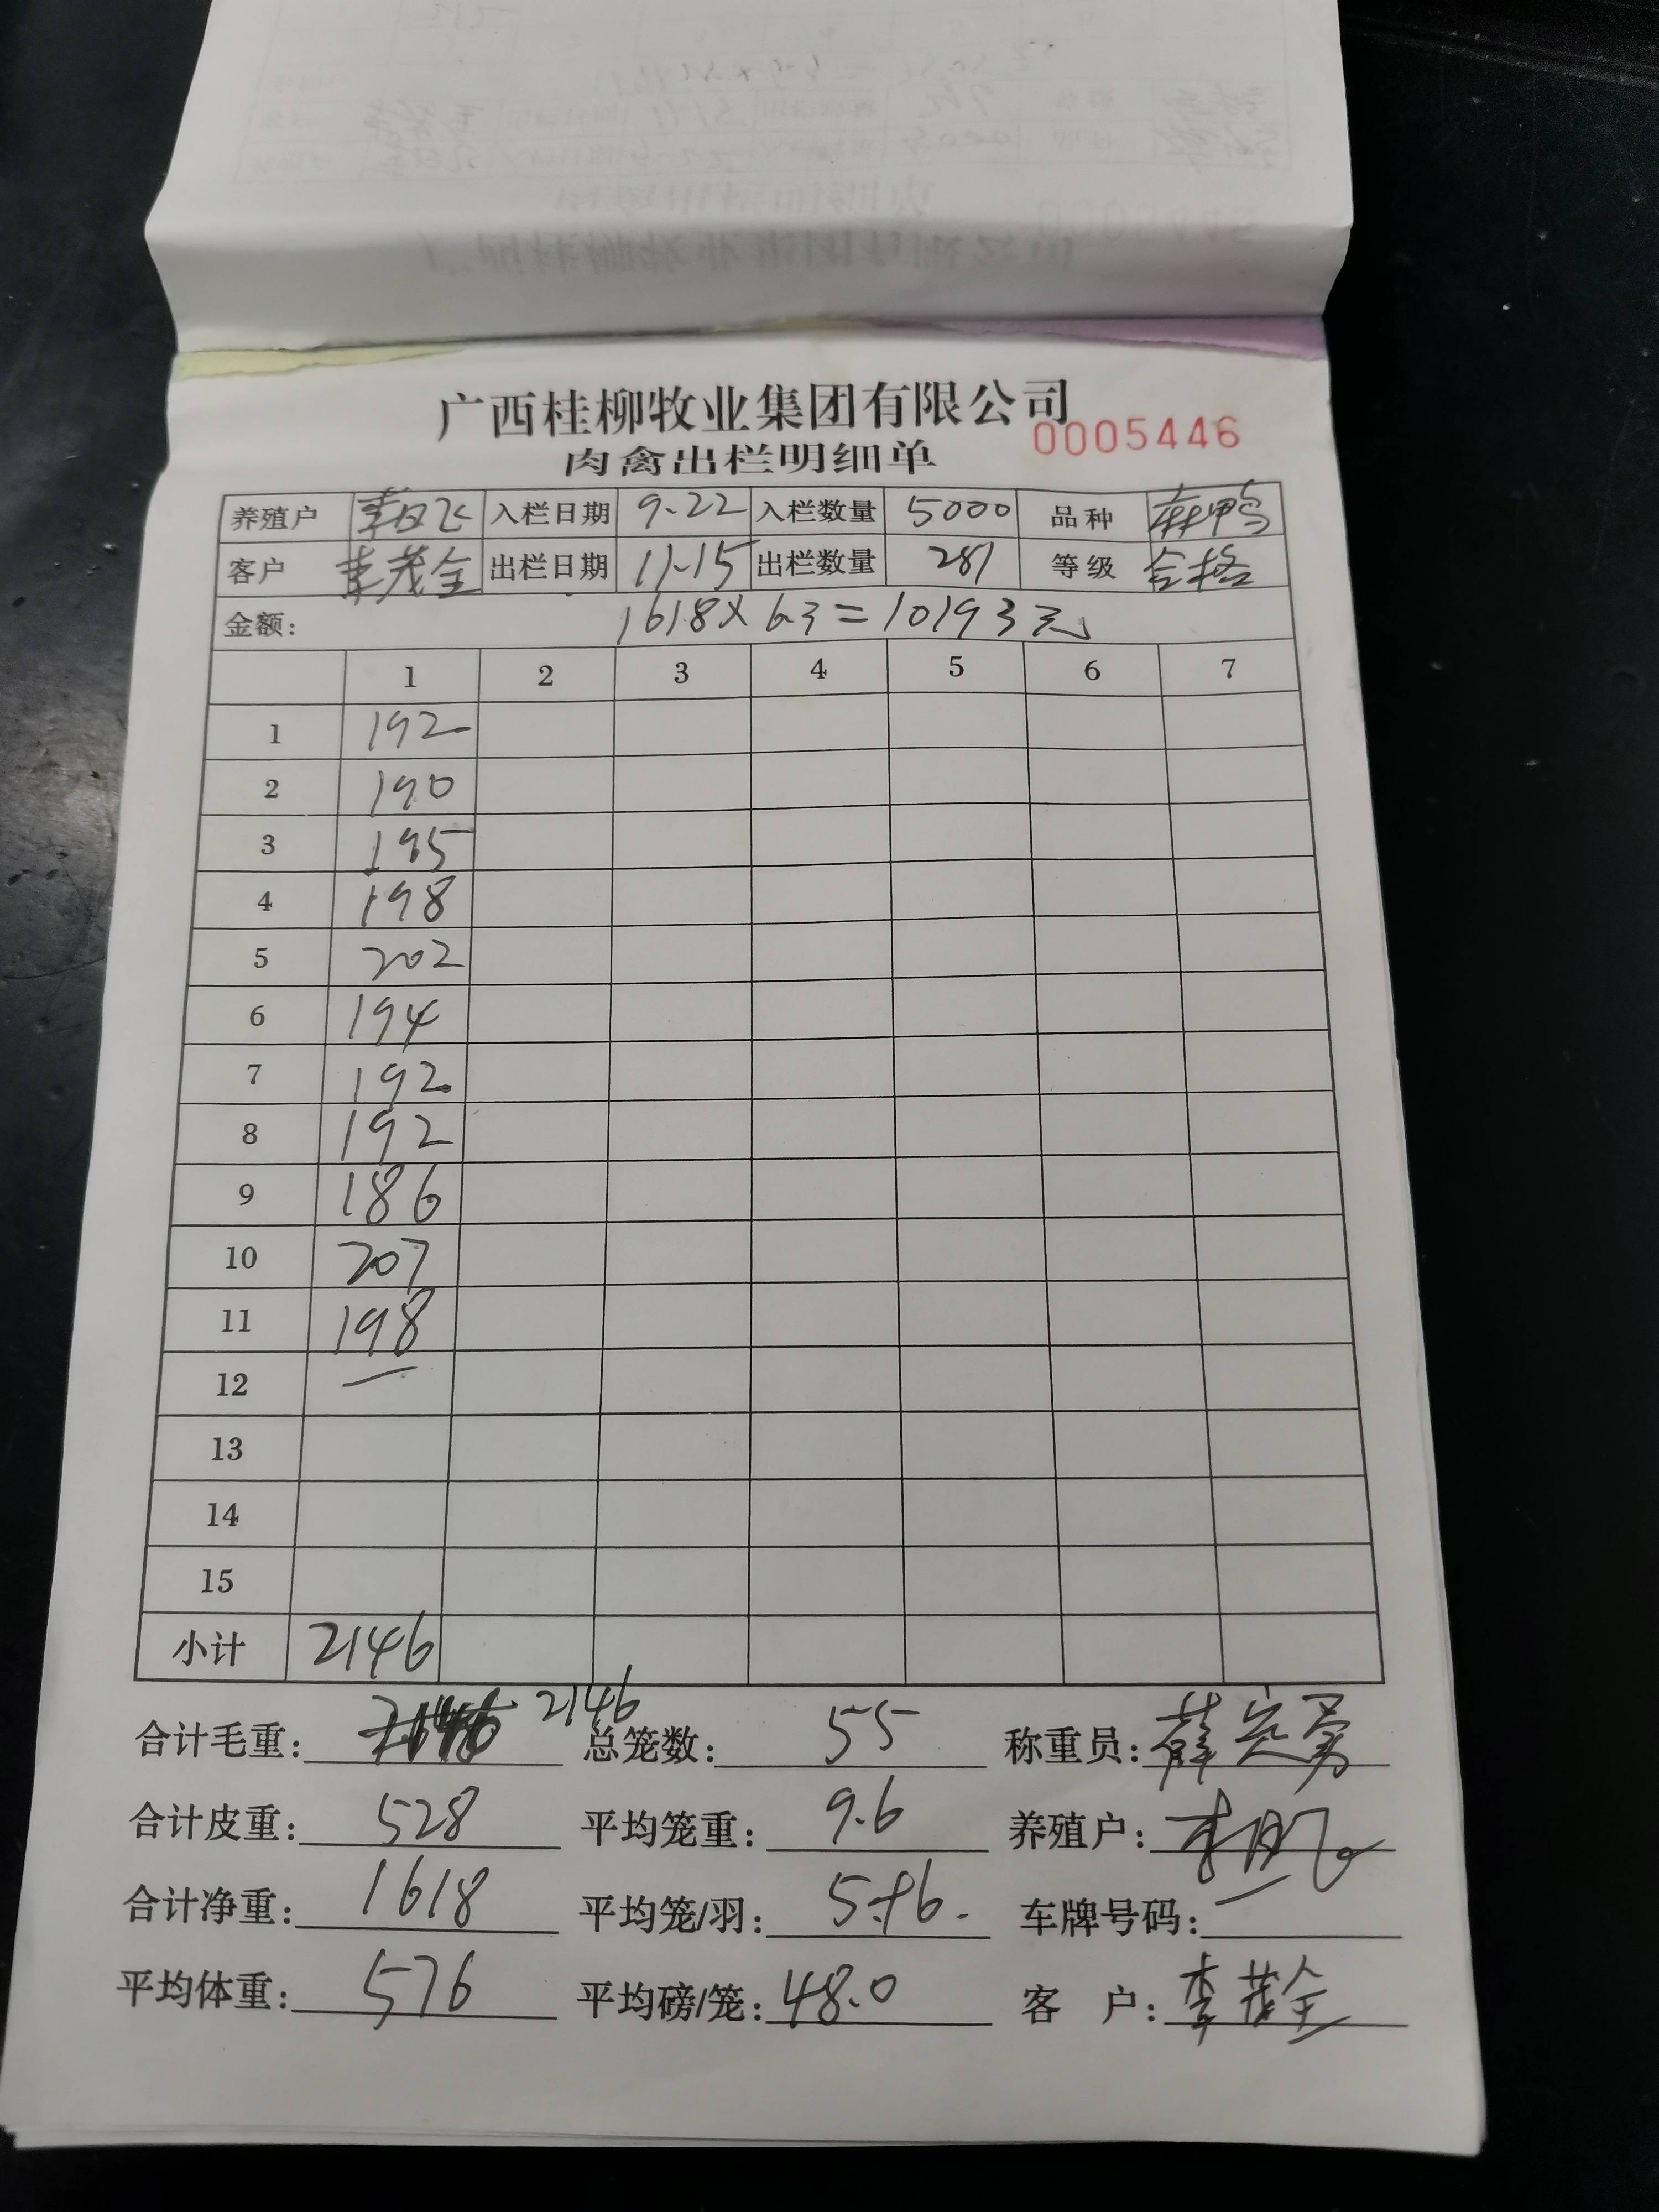 广西桂柳牧业集团有限公司
0005446
肉禽出栏明细单
养殖户 入栏日期 9-22 入栏数量 5000 品种 麻鸭
客户 李茂全 出栏日期 11-15 出栏数量 281 等级 合格
金额: 1618×6.3=10193元
1 2 3 4 5 6 7
1 192
2 190
3 195
4 198
5 202
6 194
7 192
8 192
9 186
10 207
11 198
12 —
13
14
15
小计 2146
合计毛重: 2146 总笼数: 55 称重员:
合计皮重: 528 平均笼重: 9.6 养殖户:
合计净重: 1618 平均笼/羽: 车牌号码: —
平均体重: 576 平均磅/笼: 48.0 客 户: 李茂全